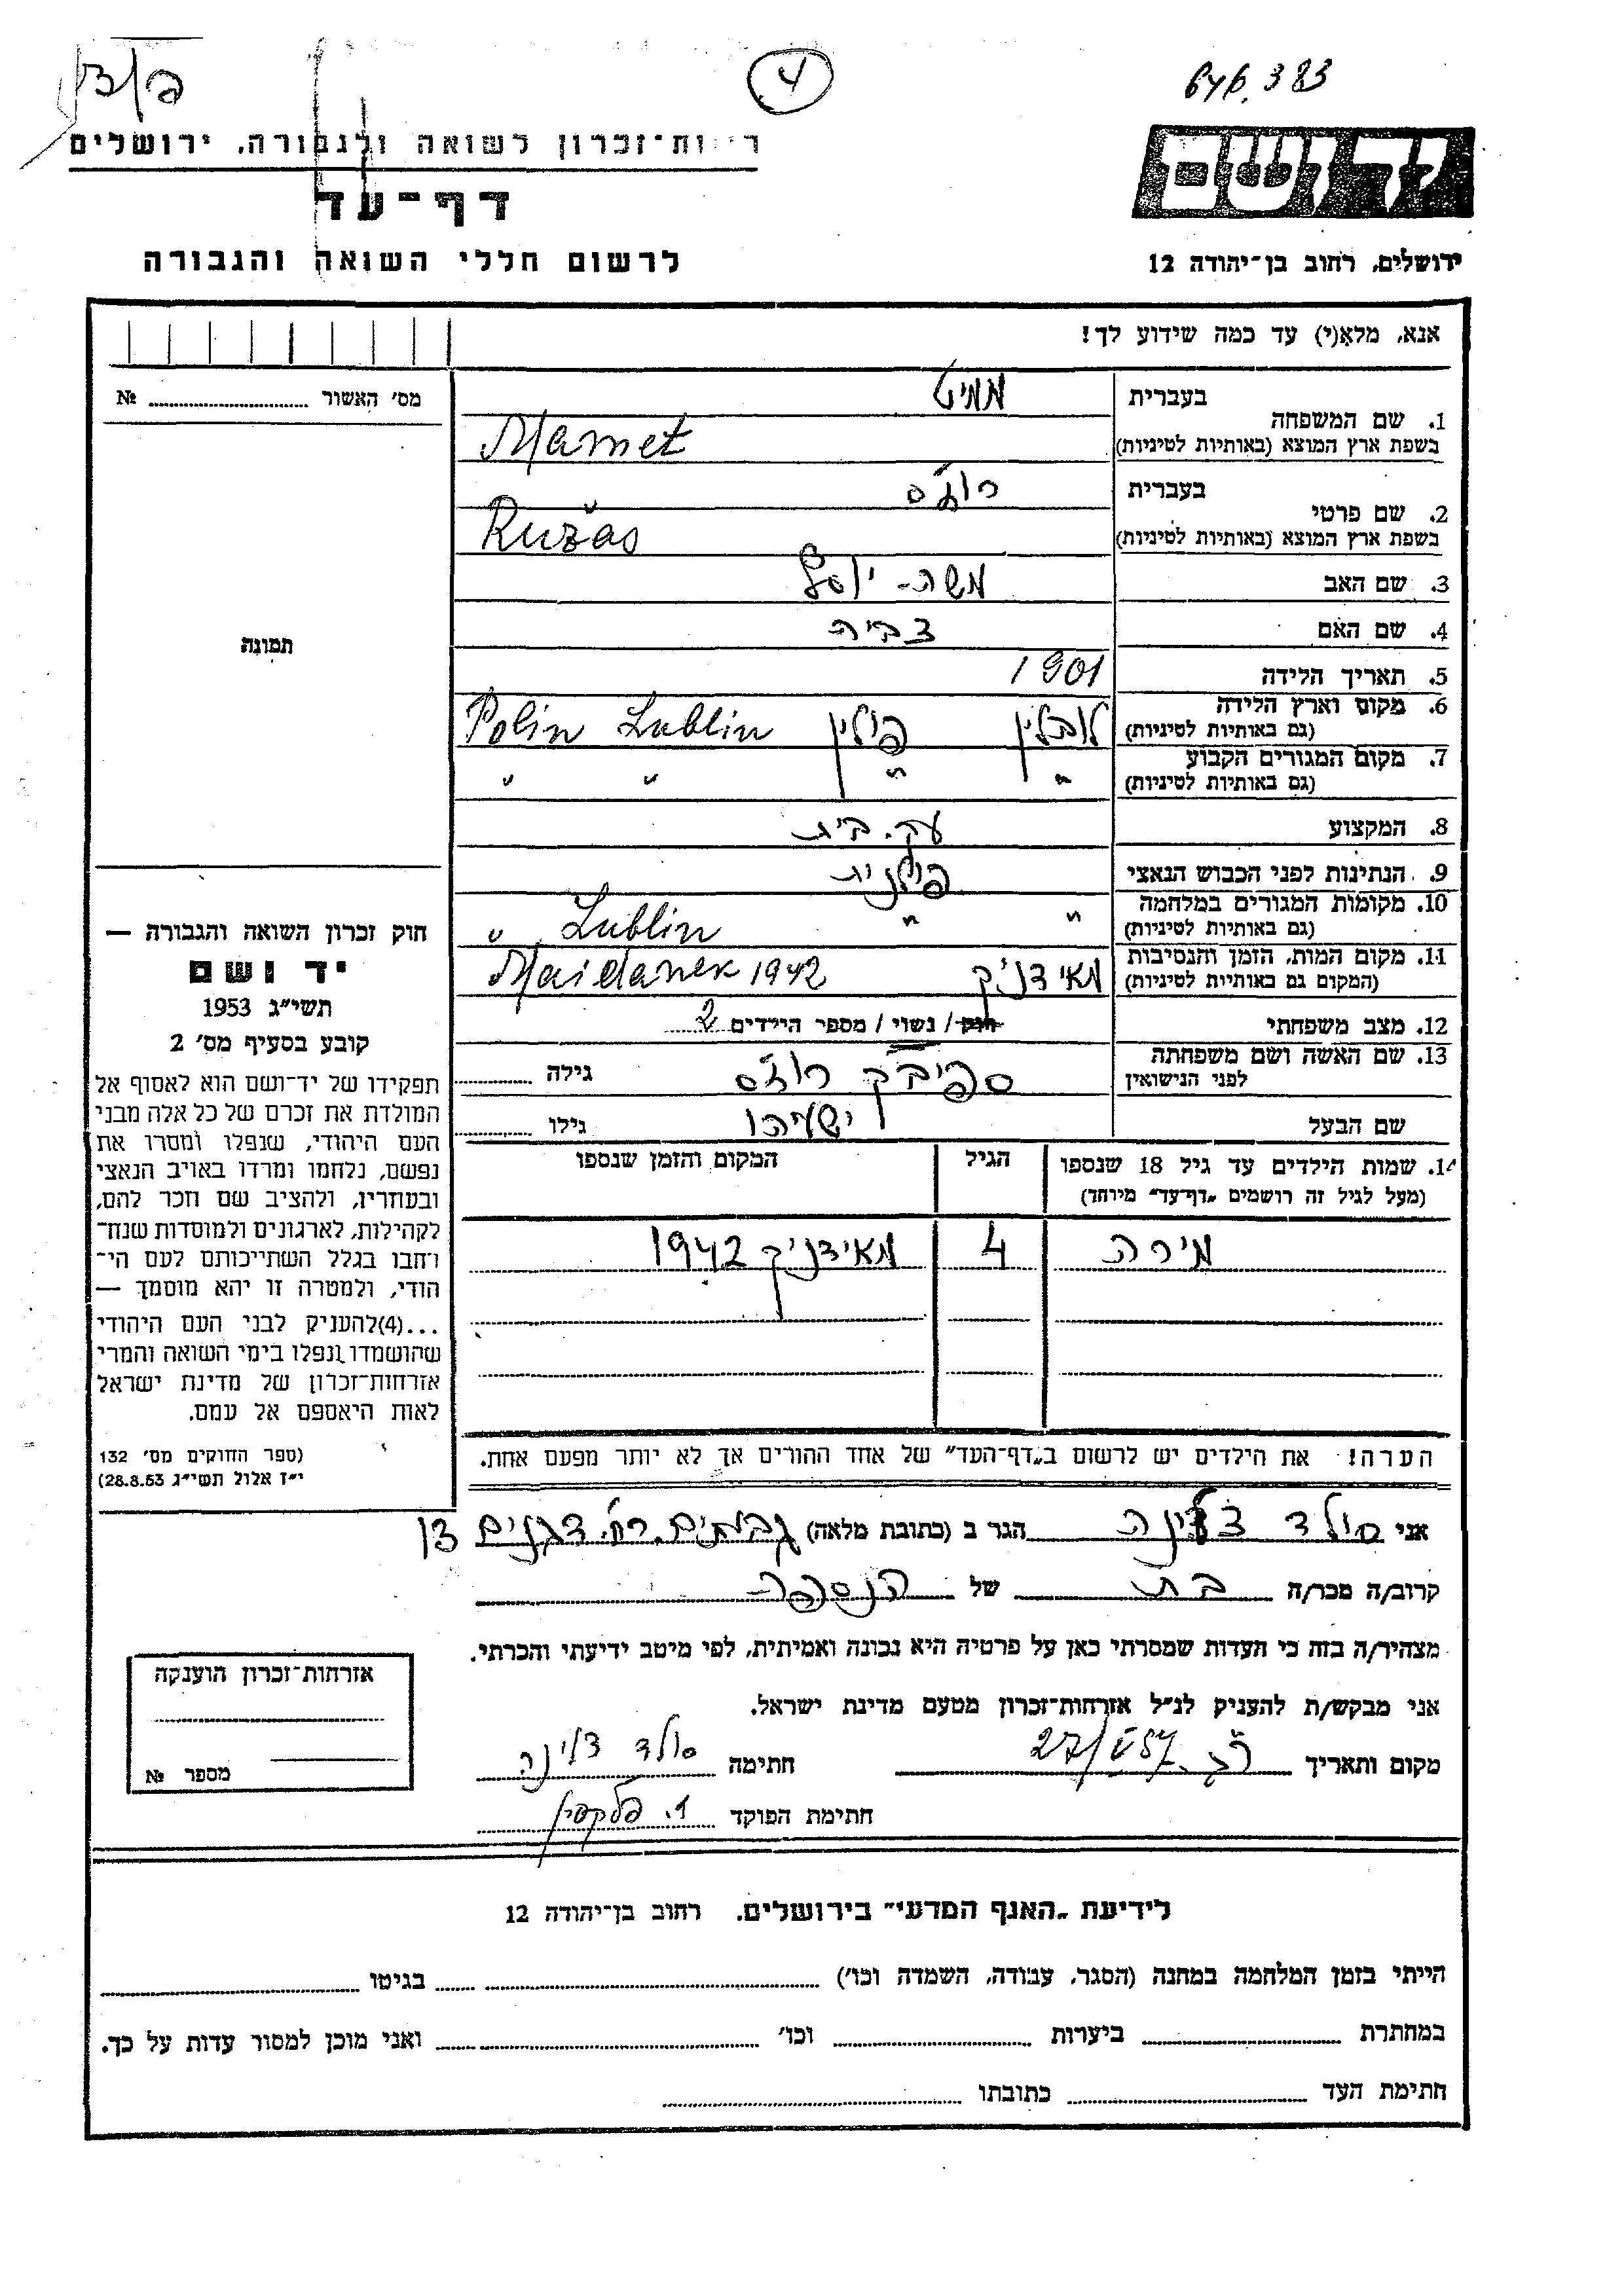 4
646.383
רשות-זכרון לשואה ולגבורה, ירושלים
דף-עד
לרשום חללי השואה והגבורה
יד ושם
ירושלים, רחוב בן-יהודה 12
אנא, מלא(י) עד כמה שידוע לך!
מס׳ האשור № 
1. שם המשפחה
בעברית ממיט
בשפת ארץ המוצא (באותיות לטיניות) Mamet
2. שם פרטי
בעברית רוז׳ס
בשפת ארץ המוצא (באותיות לטיניות) Ružas
3. שם האב משה-יוסף
4. שם האם צביה
5. תאריך הלידה 1901
6. מקום וארץ הלידה לובלין פולין Lublin Polin
(גם באותיות לטיניות)
7. מקום המגורים הקבוע " " " "
(גם באותיות לטיניות)
8. המקצוע עק. בית
9. הנתינות לפני הכבוש הנאצי פולנית
10. מקומות המגורים במלחמה " " Lublin "
(גם באותיות לטיניות)
11. מקום המות, הזמן והנסיבות מאידניק Maidanek 1942
(המקום גם באותיות לטיניות)
12. מצב משפחתי רווק / נשוי / מספר הילדים 2
13. שם האשה ושם משפחתה ספיבק רוז׳ס גילה
לפני הנישואין
שם הבעל ישעיהו גילו
14. שמות הילדים עד גיל 18 שנספו הגיל המקום והזמן שנספו
(מעל לגיל זה רושמים „דף-עד" מיוחד)
מירה 4 מאידניק 1942
הערה! את הילדים יש לרשום ב„דף-העד" של אחד ההורים אך לא יותר מפעם אחת.
תמונה
חוק זכרון השואה והגבורה —
יד ושם
תשי״ג 1953
קובע בסעיף מס׳ 2
תפקידו של יד-ושם הוא לאסוף אל
המולדת את זכרם של כל אלה מבני
העם היהודי, שנפלו ומסרו את
נפשם, נלחמו ומרדו באויב הנאצי
ובעוזריו, ולהציב שם וזכר להם,
לקהילות, לארגונים ולמוסדות שנח-
רבו בגלל השתייכותם לעם הי-
הודי, ולמטרה זו יהא מוסמך —
...(4)להעניק לבני העם היהודי
שהושמדו ונפלו בימי השואה והמרי
אזרחות-זכרון של מדינת ישראל
לאות היאספם אל עמם.
(ספר החוקים מס׳ 132
י״ז אלול תשי״ג 28.8.53)
אני סולד הגר ב (כתובת מלאה) גבעתיים רח׳ דגנים
קרוב/ה מכר/ה בת של הנספה
מצהיר/ה בזה כי העדות שמסרתי כאן על פרטיה היא נכונה ואמיתית, לפי מיטב ידיעתי והכרתי.
אני מבקש/ת להעניק לנ״ל אזרחות-זכרון מטעם מדינת ישראל.
מקום ותאריך ר״ג 27/V 57 חתימה סולד
חתימת הפוקד
אזרחות-זכרון הוענקה
מספר №
לידיעת „האגף המדעי" בירושלים, רחוב בן-יהודה 12
הייתי בזמן המלחמה במחנה (הסגר, עבודה, השמדה וכו׳) בגיטו
במחתרת ביערות וכו׳ ואני מוכן למסור עדות על כך.
חתימת העד כתובתו